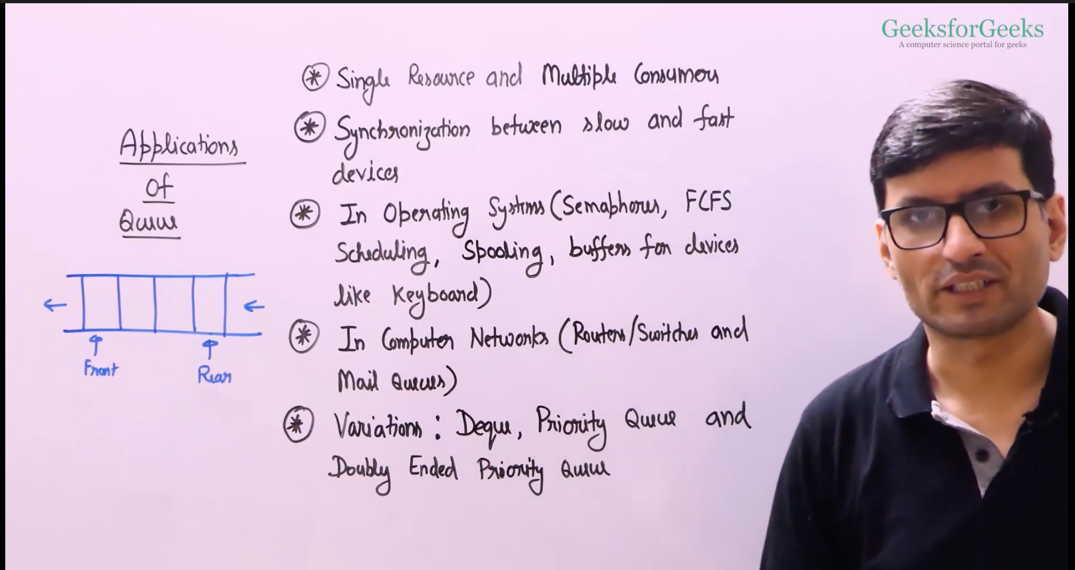 GeeksforGeeks
A computer science portal for geeks
Applications
Of
Queue
Front
Rear
* Single Resource and Multiple Consumers
* Synchronization between slow and fast
devices
* In Operating Systems (Semaphores, FCFS
Scheduling, Spooling, buffers for devices
like Keyboard)
* In Computer Networks (Routers/Switches and
Mail Queues)
* Variations : Deque, Priority Queue and
Doubly Ended Priority Queue